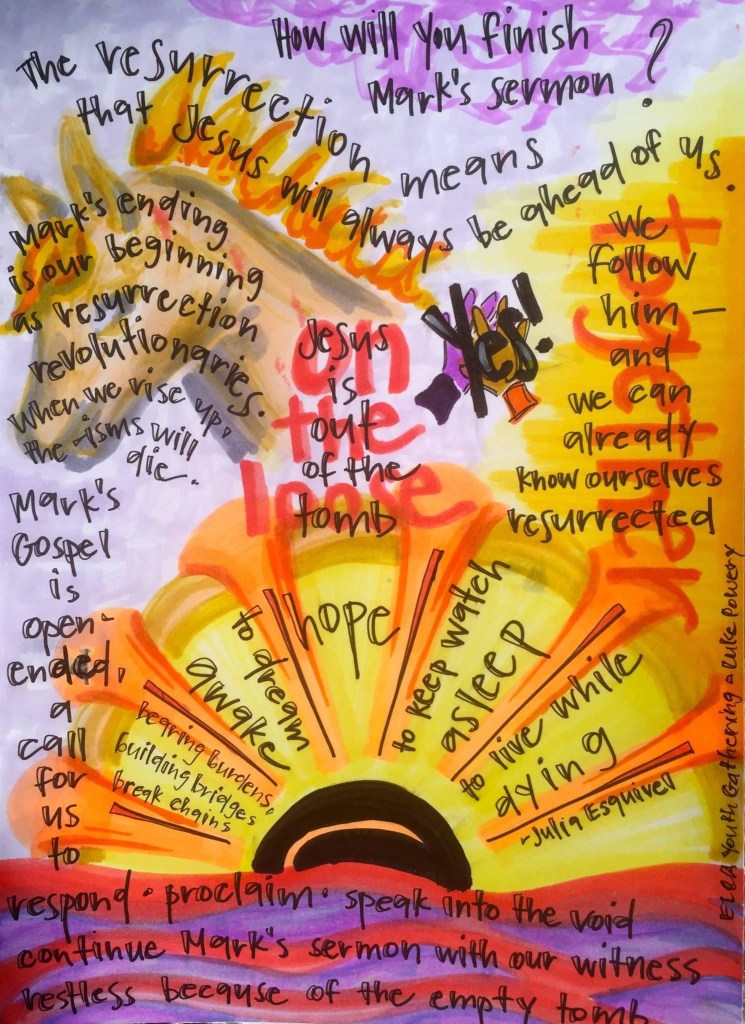 How will you finish
Mark's sermon?
The resurrection means
that Jesus will always be ahead of us.
Mark's ending
is our beginning
as resurrection
revolutionaries.
When we rise up,
the -isms will
die.
Yes!
Jesus
is
out
of the
tomb
on
the
loose
We
follow
him —
and
we can
already
know ourselves
resurrected
together
Mark's
Gospel
is
open-
ended,
a
call
for
us
to
respond · proclaim · speak into the void
continue Mark's sermon with our witness
restless because of the empty tomb
bearing burdens,
building bridges
break chains
to dream
awake
hope
to keep watch
asleep
to live while
dying
-Julia Esquivel
ELCA Youth Gathering & Luke Powery